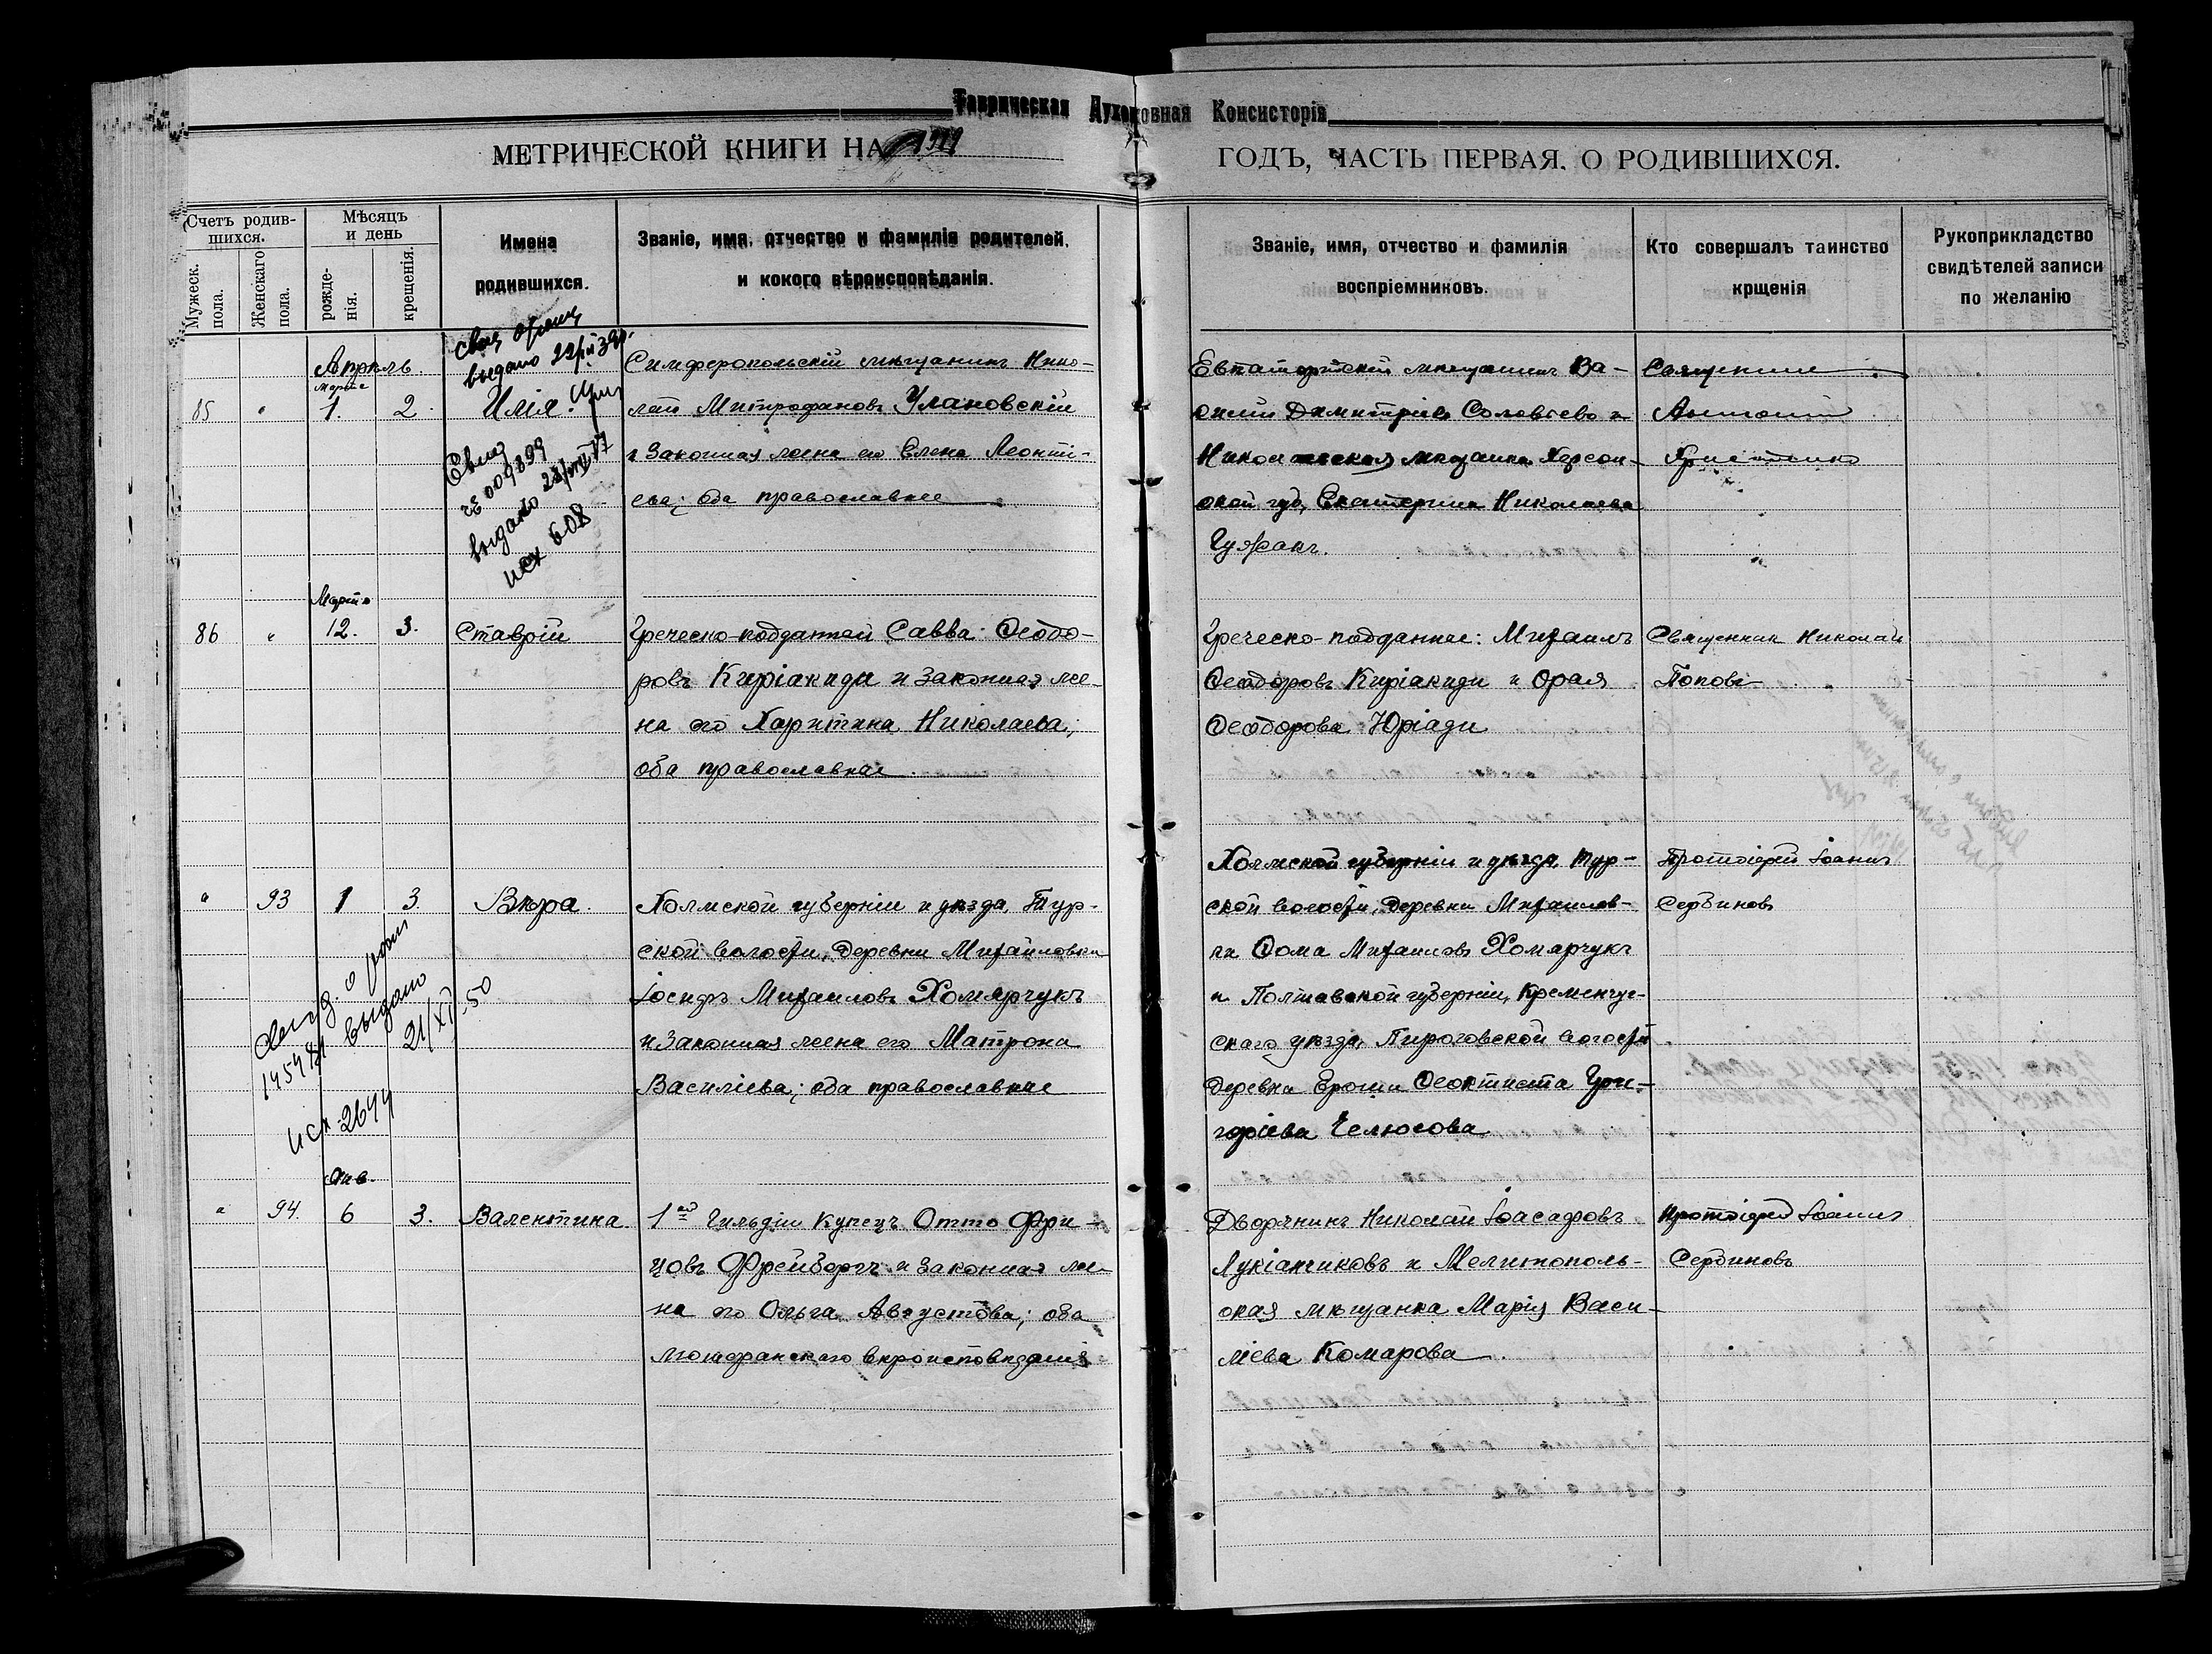 Таврическая Духовная Консисторія
МЕТРИЧЕСКОЙ КНИГИ НА
ГОДЪ, ЧАСТЬ ПЕРВАЯ. О РОДИВШИХСЯ.
Счетъ родив-
шихся.
Мужеск.
пола.
Женскаго
пола.
Мѣсяцъ
и день
рожде-
нія.
крещенія.
Имена
родившихся.
Званіе, имя, отчество и фамилія родителей,
и кокого вѣроисповѣданія.
Званіе, имя, отчество и фамилія
воспріемниковъ.
Кто совершалъ таинство
крщенія
Рукоприкладство
свидѣтелей записи
по желанію
Апрѣль
Марта
85
"
1.
2
выдано
Илія.
Свид
009899
выдано
исх 608
Симферопольскій мѣщанинъ Нико-
лай Митрофановъ Улановскій
и законная жена его Елена Леонті-
ева; оба православные
Евпаторійскій мѣщанинъ Ва-
силій Димитріевъ Соловьевъ и
Николаевская мѣщанка Херсон-
ской губ, Екатерина Николаева
Священникъ
Антоній
Марта
86
"
12.
3.
Ставрій
Греческо-подданный Савва Ѳеодо-
ровъ Киріакиди и законная же-
на его Харитина Николаева;
оба православные
Греческо-подданные: Михаилъ
Ѳеодоровъ Киріакиди и Ѳрая
Ѳеодорова Юріади
Священникъ Николай
Поповъ
"
93
1
3.
Вѣра.
выдано
21/XI-50
исх-2644
Холмской губерніи и уѣзда, Тур-
ской волости, деревни Михайловки
Іосифъ Михаиловъ Хомярчукъ
и законная жена его Матрона
Василіева; оба православные
Холмской губерніи и уѣзда, Тур-
ской волости, деревни Михайлов-
ки Ѳома Михаиловъ Хомярчукъ
и Полтавской губерніи, Кременчуг-
скаго уѣзда, Пироговской волости
деревни Ероши Ѳеоктиста Гри-
горіева Челюсова
Протоіерей Іоаннъ
Сербиновъ
Янв.
"
94.
6
3.
Валентина.
1ой гильдіи купецъ Отто Фри-
цовъ Фрейбергъ и законная же-
на его Ольга Августова; оба
лютеранскаго вѣроисповѣданія
Дворянинъ Николай Іоасафовъ
Лукіанчиковъ и Мелитополь-
ская мѣщанка Марія Васи-
ліева Комарова
Протоіерей Іоаннъ
Сербиновъ